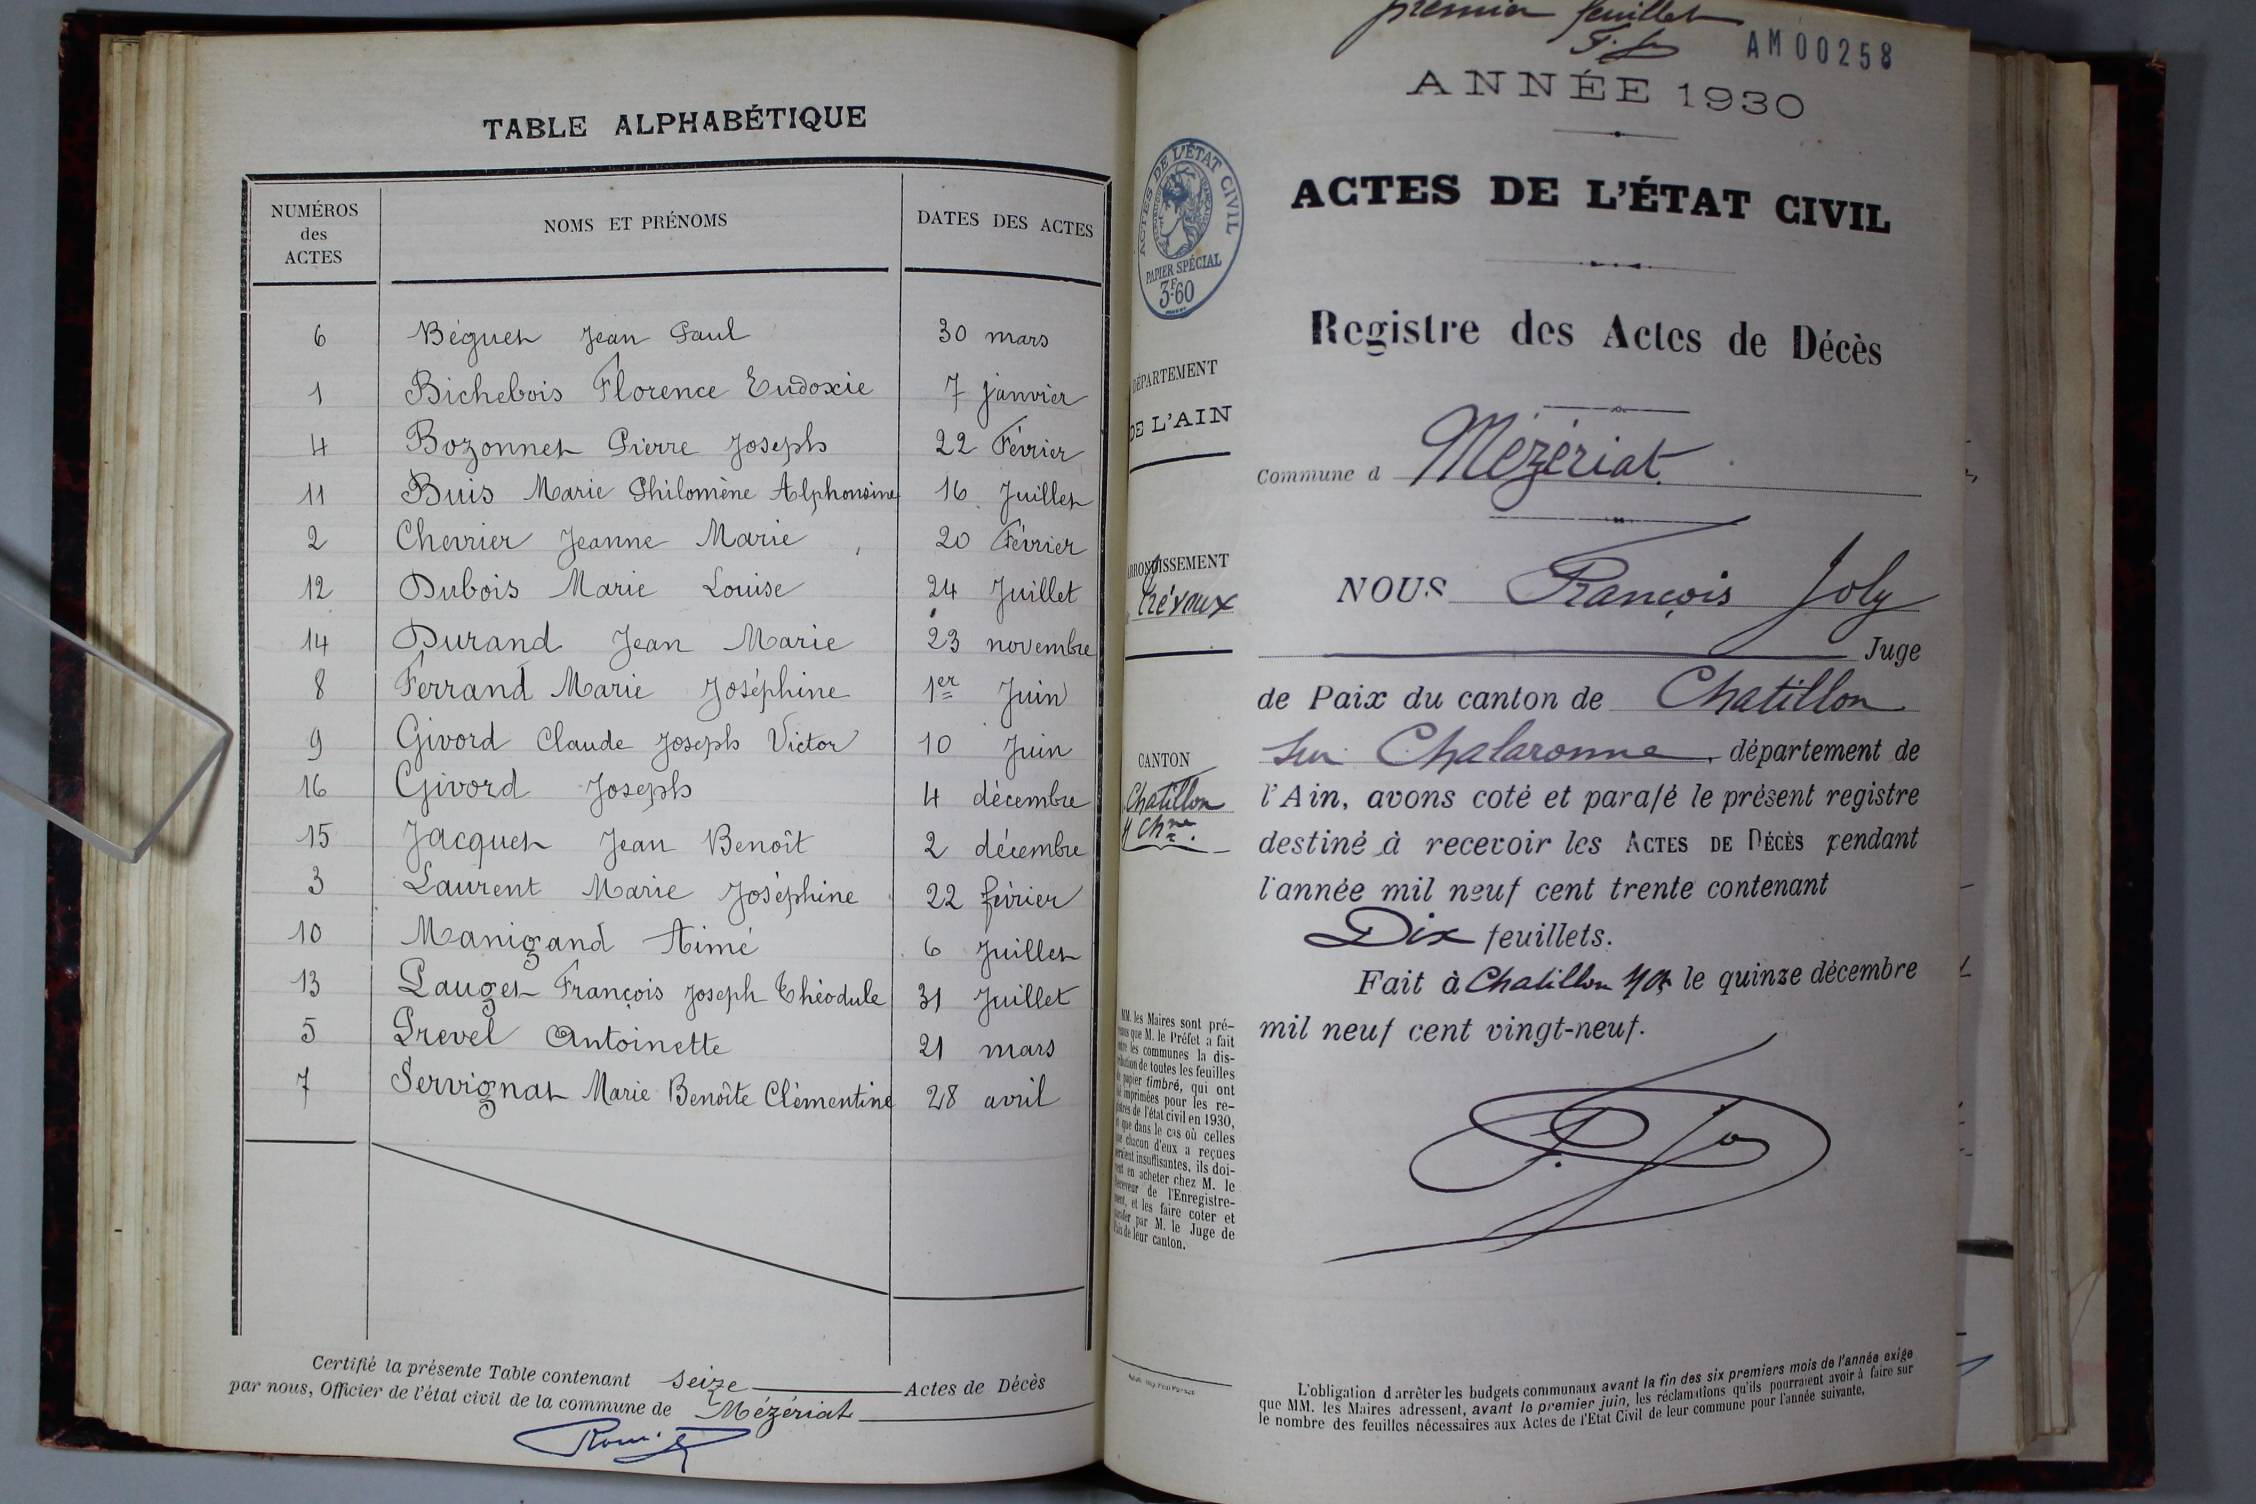 TABLE ALPHABÉTIQUE
NUMÉROS des ACTES NOMS ET PRÉNOMS DATES DES ACTES
6 Béguet Jean Paul 30 mars
1 Bichebois Florence Eudoxie 7 janvier
4 Bozonnet Pierre Joseph 22 Février
11 Buis Marie Philomène Alphonsine 16 Juillet
2 Chevrier Jeanne Marie 20 Février
12 Dubois Marie Louise 24 Juillet
14 Durand Jean Marie 23 novembre
8 Ferrand Marie Joséphine 1er Juin
9 Givord Claude Joseph Victor 10 Juin
16 Givord Joseph 4 décembre
15 Jacquet Jean Benoît 2 décembre
3 Laurent Marie Joséphine 22 février
10 Manigand Aimé 6 Juillet
13 Pauget François Joseph Théodule 31 Juillet
5 Prevel Antoinette 21 mars
7 Servignat Marie Benoîte Clémentine 28 avril
Certifié la présente Table contenant seize Actes de Décès
par nous, Officier de l'état civil de la commune de Mézériat
premier feuillet
AM00258
ANNÉE 1930
ACTES DE L'ÉTAT CIVIL
PAPIER SPÉCIAL
3F60
ACTES DE L'ÉTAT CIVIL
Registre des Actes de Décès
DÉPARTEMENT
DE L'AIN
Commune d Mézériat
ARRONDISSEMENT
Trévoux
NOUS François Joly
Juge
de Paix du canton de Chatillon
sur Chalaronne, département de
CANTON
Chatillon
s/ Chne.
l'Ain, avons coté et parafé le présent registre
destiné à recevoir les ACTES DE DÉCÈS pendant
l'année mil neuf cent trente contenant
Dix feuillets.
Fait à Chatillon le quinze décembre
mil neuf cent vingt-neuf.
MM. les Maires sont pré-
venus que M. le Préfet a fait
entre les communes la dis-
tribution de toutes les feuilles
de papier timbré, qui ont
été imprimées pour les re-
gistres de l'état civil en 1930,
et que dans le cas où celles
que chacun d'eux a reçues
seraient insuffisantes, ils doi-
vent en acheter chez M. le
Receveur de l'Enregistre-
ment, et les faire coter et
parafer par M. le Juge de
Paix de leur canton.
L'obligation d'arrêter les budgets communaux avant la fin des six premiers mois de l'année exige
que MM. les Maires adressent, avant le premier juin, les réclamations qu'ils pourraient avoir à faire sur
le nombre des feuilles nécessaires aux Actes de l'Etat Civil de leur commune pour l'année suivante.